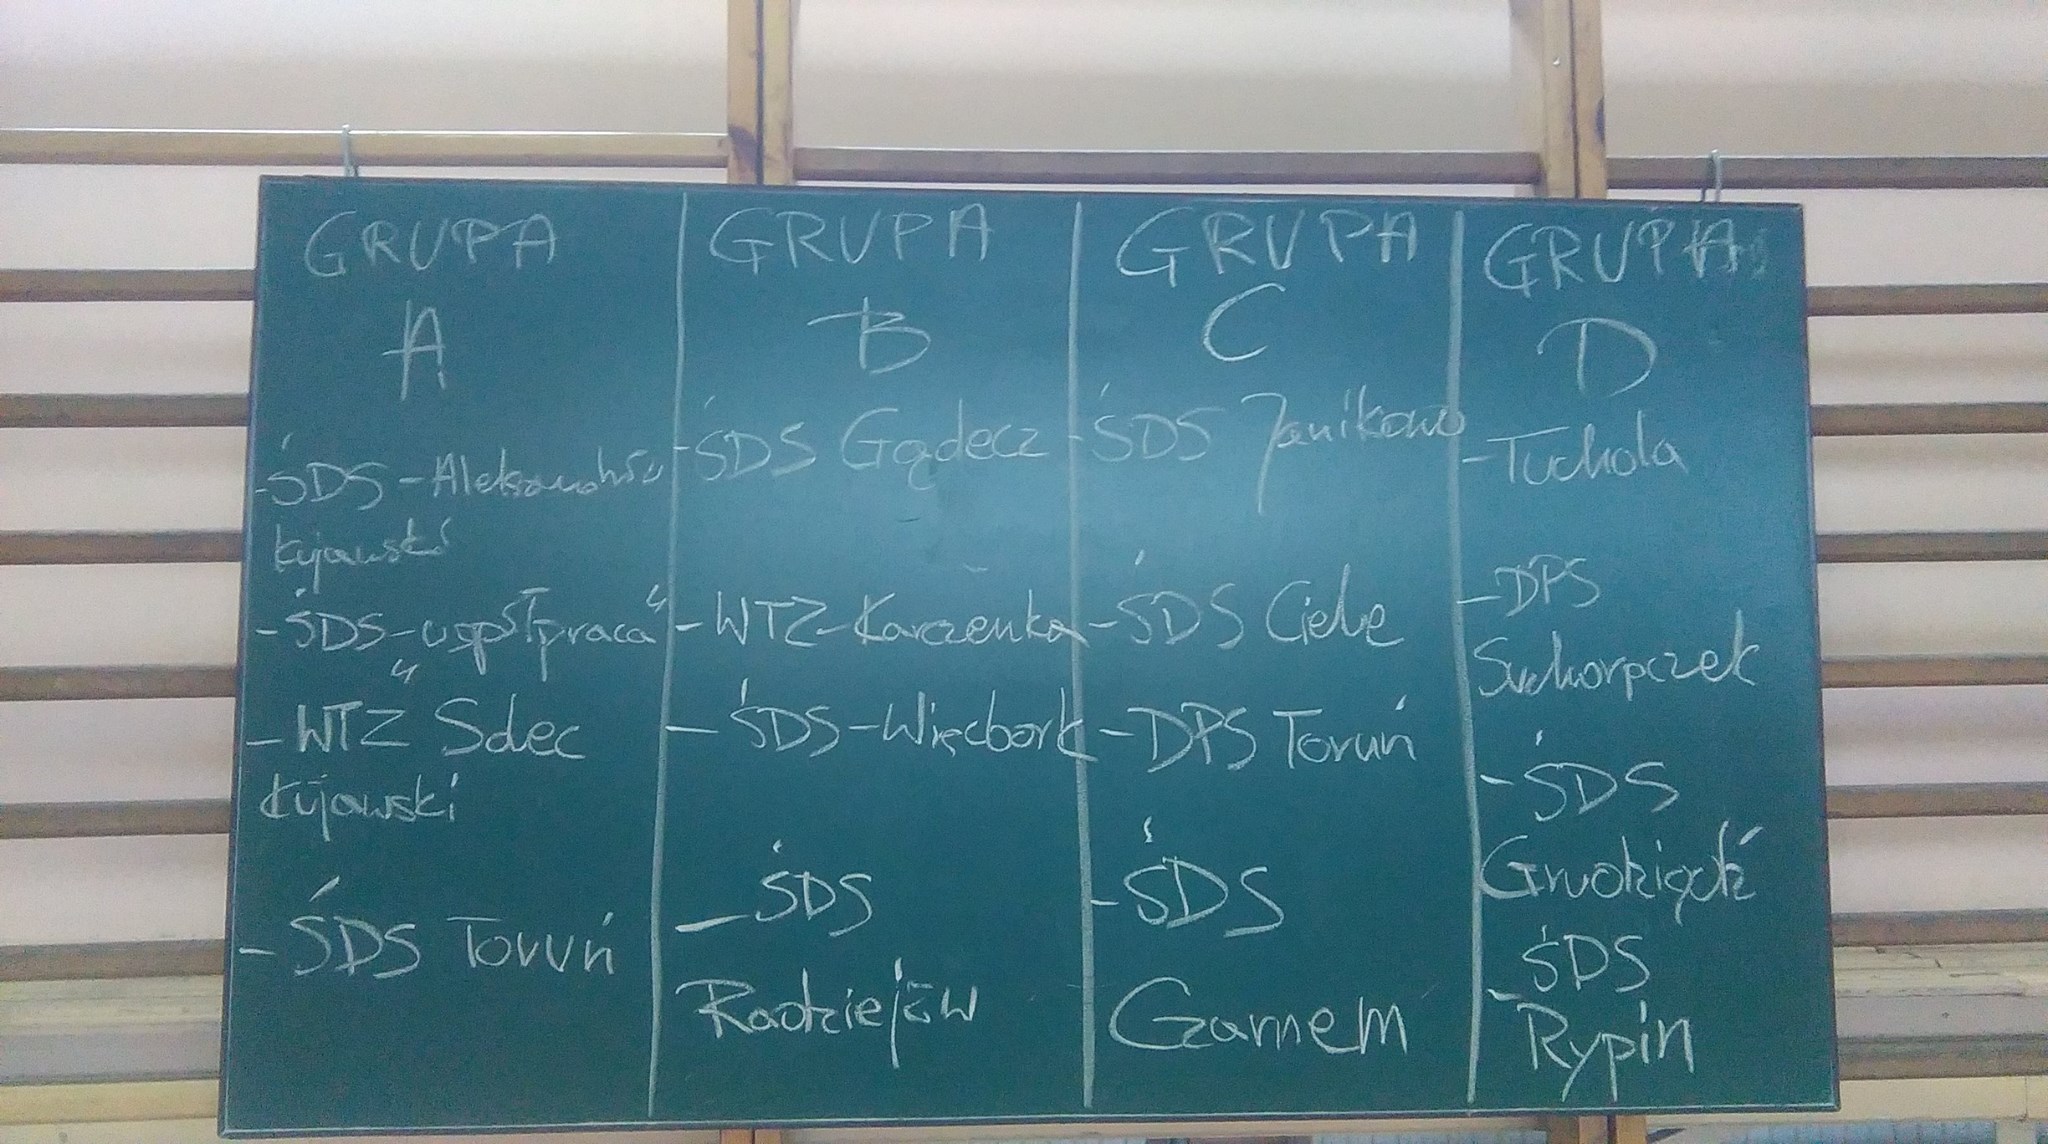 GRUPA
A
-ŚDS -Aleksandrów
kujawski
-ŚDS-„współpraca"
-WTZ Sdec
kujawski
-ŚDS Toruń
GRUPA
B
-ŚDS Gądecz
-WTZ-Karczenka
-ŚDS-Więcbork
-ŚDS
Radziejów
GRUPA
C
-ŚDS Janikowo
-ŚDS Ciele
-DPS Toruń
-ŚDS
Czarnem
GRUPA
D
-Tuchola
-DPS
Suchorączek
-ŚDS
Grudziądź
-ŚDS
Rypin